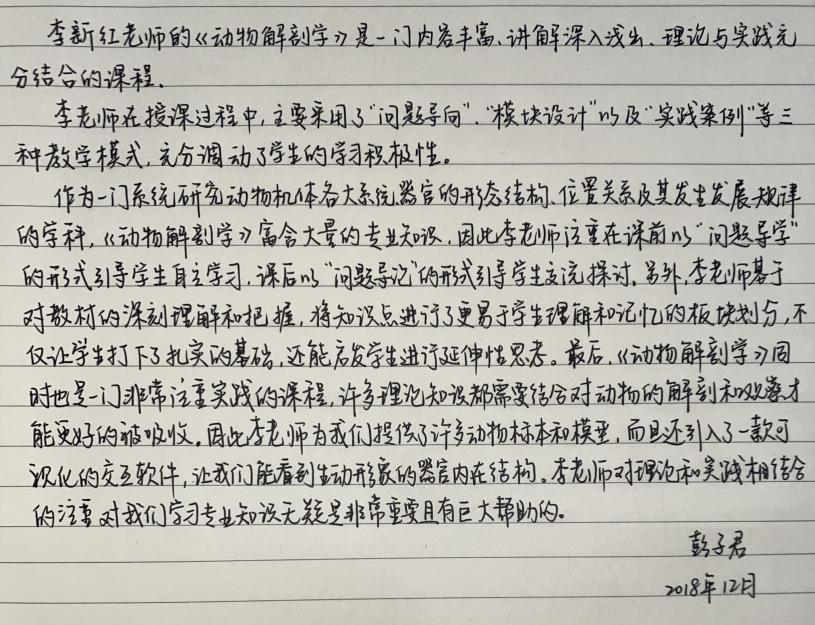 李新红老师的《动物解剖学》是一门内容丰富、讲解深入浅出、理论与实践充
分结合的课程.
李老师在授课过程中,主要采用了"问题导向"、"模块设计"以及"实践案例"等三
种教学模式,充分调动了学生的学习积极性。
作为一门系统研究动物机体各大系统器官的形态结构、位置关系及其发生发展规律
的学科,《动物解剖学》富含大量的专业知识,因此李老师注重在课前以"问题导学"
的形式引导学生自主学习,课后以"问题导论"的形式引导学生交流探讨。另外,李老师基于
对教材的深刻理解和把握,将知识点进行了更易于学生理解和记忆的板块划分,不
仅让学生打下了扎实的基础,还能启发学生进行延伸性思考。最后,《动物解剖学》同
时也是一门非常注重实践的课程,许多理论知识都需要结合对动物的解剖和观察才
能更好的被吸收。因此李老师为我们提供了许多动物标本和模型,而且还引入了一款可
视化的交互软件,让我们能看到生动形象的器官内在结构。李老师对理论和实践相结合
的注重对我们学习专业知识无疑是非常重要且有巨大帮助的。
彭子君
2018年12月